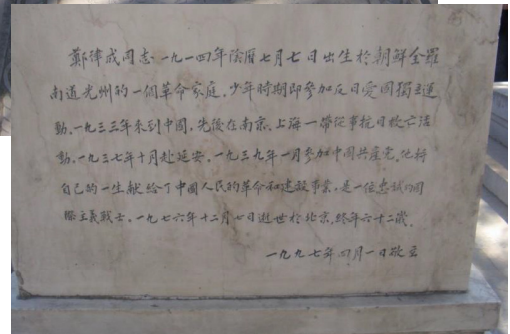 鄭律成同志一九一四年陰曆七月七日出生於朝鮮全羅
南道光州的一個革命家庭．少年時期即參加反日愛國獨立運
動．一九三三年來到中國，先後在南京、上海一帶從事抗日救亡活
動．一九三七年十月赴延安．一九三九年一月參加中國共產党．他將
自己的一生献给了中國人民的革命和建設事業，是一位忠誠的國
際主義戰士．一九七六年十二月七日逝世於北京．終年六十二歲．
一九九七年四月一日敬立